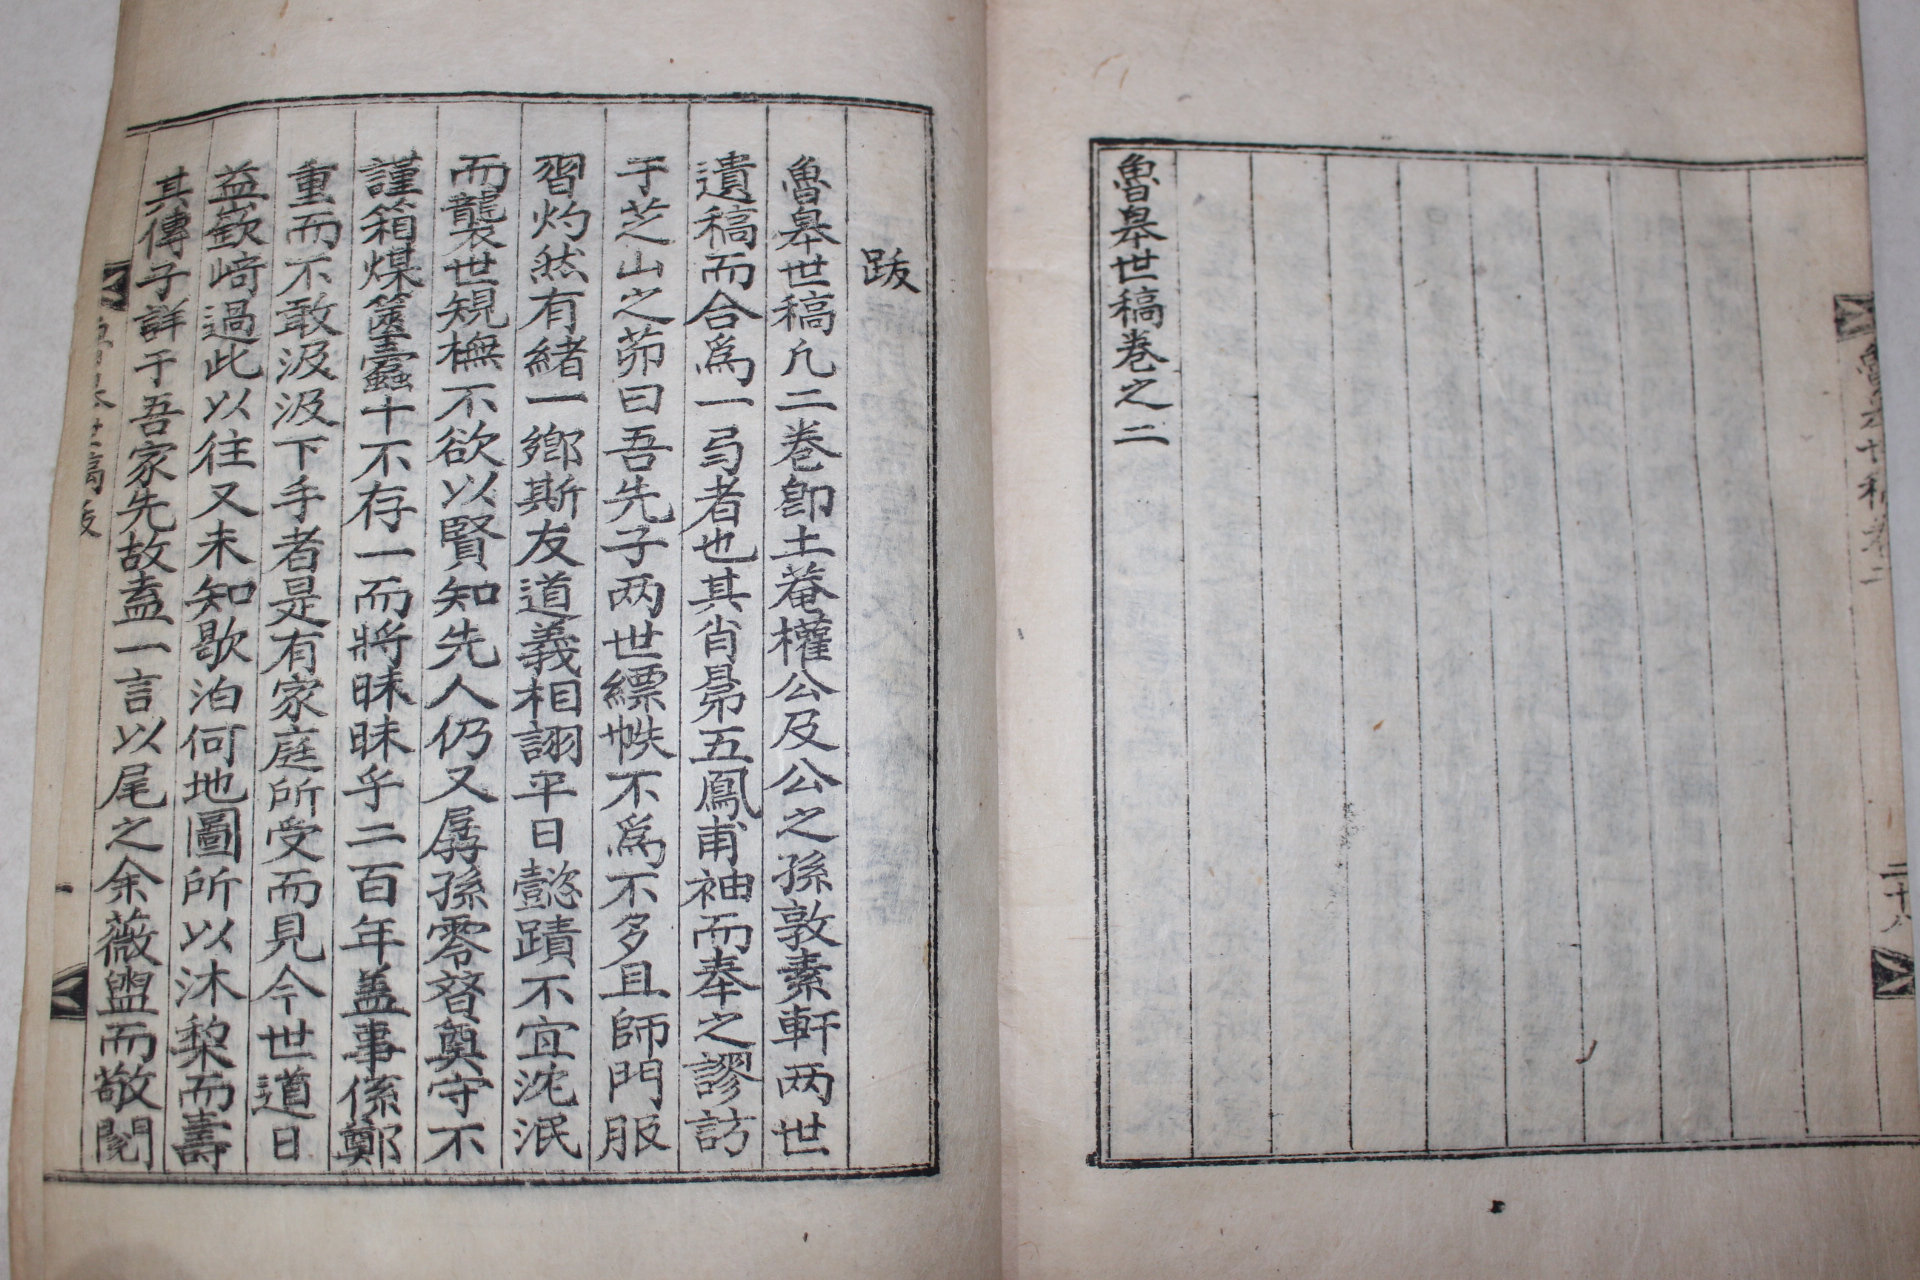 魯皐世稿卷二
二十八
魯皐世稿卷之二
跋
魯皐世稿凡二卷卽土菴權公及公之孫敦素軒两世
遺稿而合爲一弓者也其肖昴五鳳甫袖而奉之謬訪
于芝山之茆曰吾先子两世縹帙不爲不多且師門服
習灼然有緖一鄕斯友道義相詡平日懿蹟不宜沈泯
而襲世䂓橅不欲以賢知先人仍又孱孫零替奠守不
謹箱煤簏蠹十不存一而將昧昧乎二百年盖事係鄭
重而不敢汲汲下手者是有家庭所受而見今世道日
益嶔﨑過此以往又未知歇泊何地圖所以沐棃而壽
其傳子詳于吾家先故盍一言以尾之余薇盥而敬閱
魯皐世稿跋
一